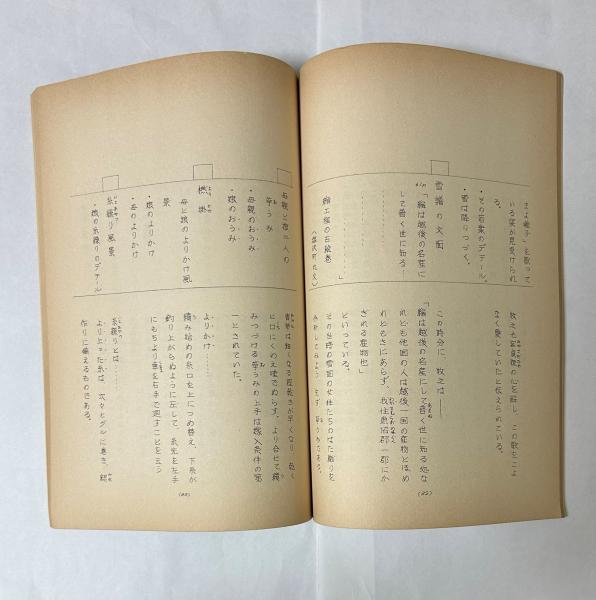 さよ麺子」を歌って
いる笑が見受けられ
る。
・その音楽のデテール。
・雪は降りつづく。
雪譜の文面
「縮は越後の名産に
して普く世に知る……
……………………」
縮工程の古絵巻
(塩沢町 所又)
牧之も宮良暖の心を解し、この歌をこよ
なく愛していたと伝えられている。
この時分に、牧之は——
「縮は越後の名産にして普く世に知る処な
れども他国の人は越後一国の産物とおぼめ
れどもさにあらず、我住魚沼郡一郡にか
ぎれる産物也」
といっている。
その当時の雪国の女性たちのはた織りを
(22)
母親と娘二人の
苧うみ
・母親のおうみ
・娘のおうみ
撚掛
母と娘のよりかけ風
景
・娘のよりかけ
・母のよりかけ
糸繰り風景
・娘の糸繰りのデテール
ヒロにくのえ唾でぬらす。より合せて績
みつづける苧うみの上手は嫁入条件の第
一とされていた。
よりかけ……
績み始めの糸口を上につめ替え、下糸が
釣り上がらぬように左して、糸先を左手
にもちより車を右手で廻すことを云う
糸繰りとは……
より上った糸は、次々とグルに巻き、綛
作りに備えるものである。
(23)